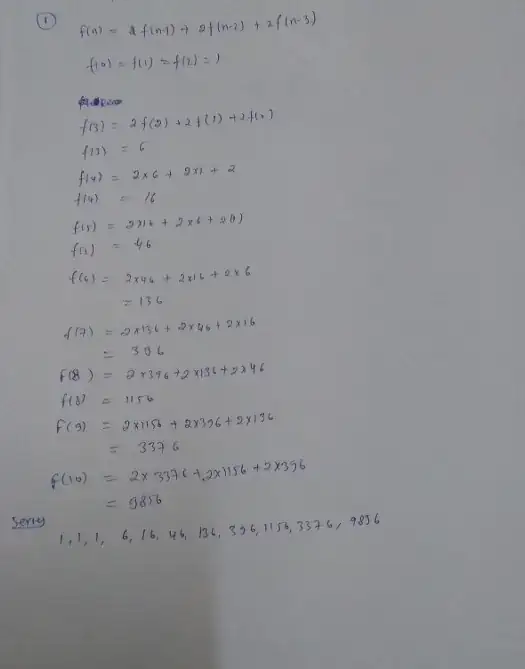 ①
f(n) = 2f(n-1) + 2f(n-2) + 2f(n-3)
f(0) = f(1) = f(2) = 1
f(3) = 2f(2) + 2f(1) + 2f(0)
f(3) = 6
f(4) = 2x6 + 2x1 + 2
f(4) = 16
f(5) = 2x16 + 2x6 + 2(1)
f(5) = 46
f(6) = 2x46 + 2x16 + 2x6
= 136
f(7) = 2x136 + 2x46 + 2x16
= 396
F(8) = 2x396 + 2x136 + 2x46
f(8) = 1156
F(9) = 2x1156 + 2x396 + 2x136
= 3376
f(10) = 2x3376 + 2x1156 + 2x396
= 9856
Series
1, 1, 1, 6, 16, 46, 136, 396, 1156, 3376, 9856